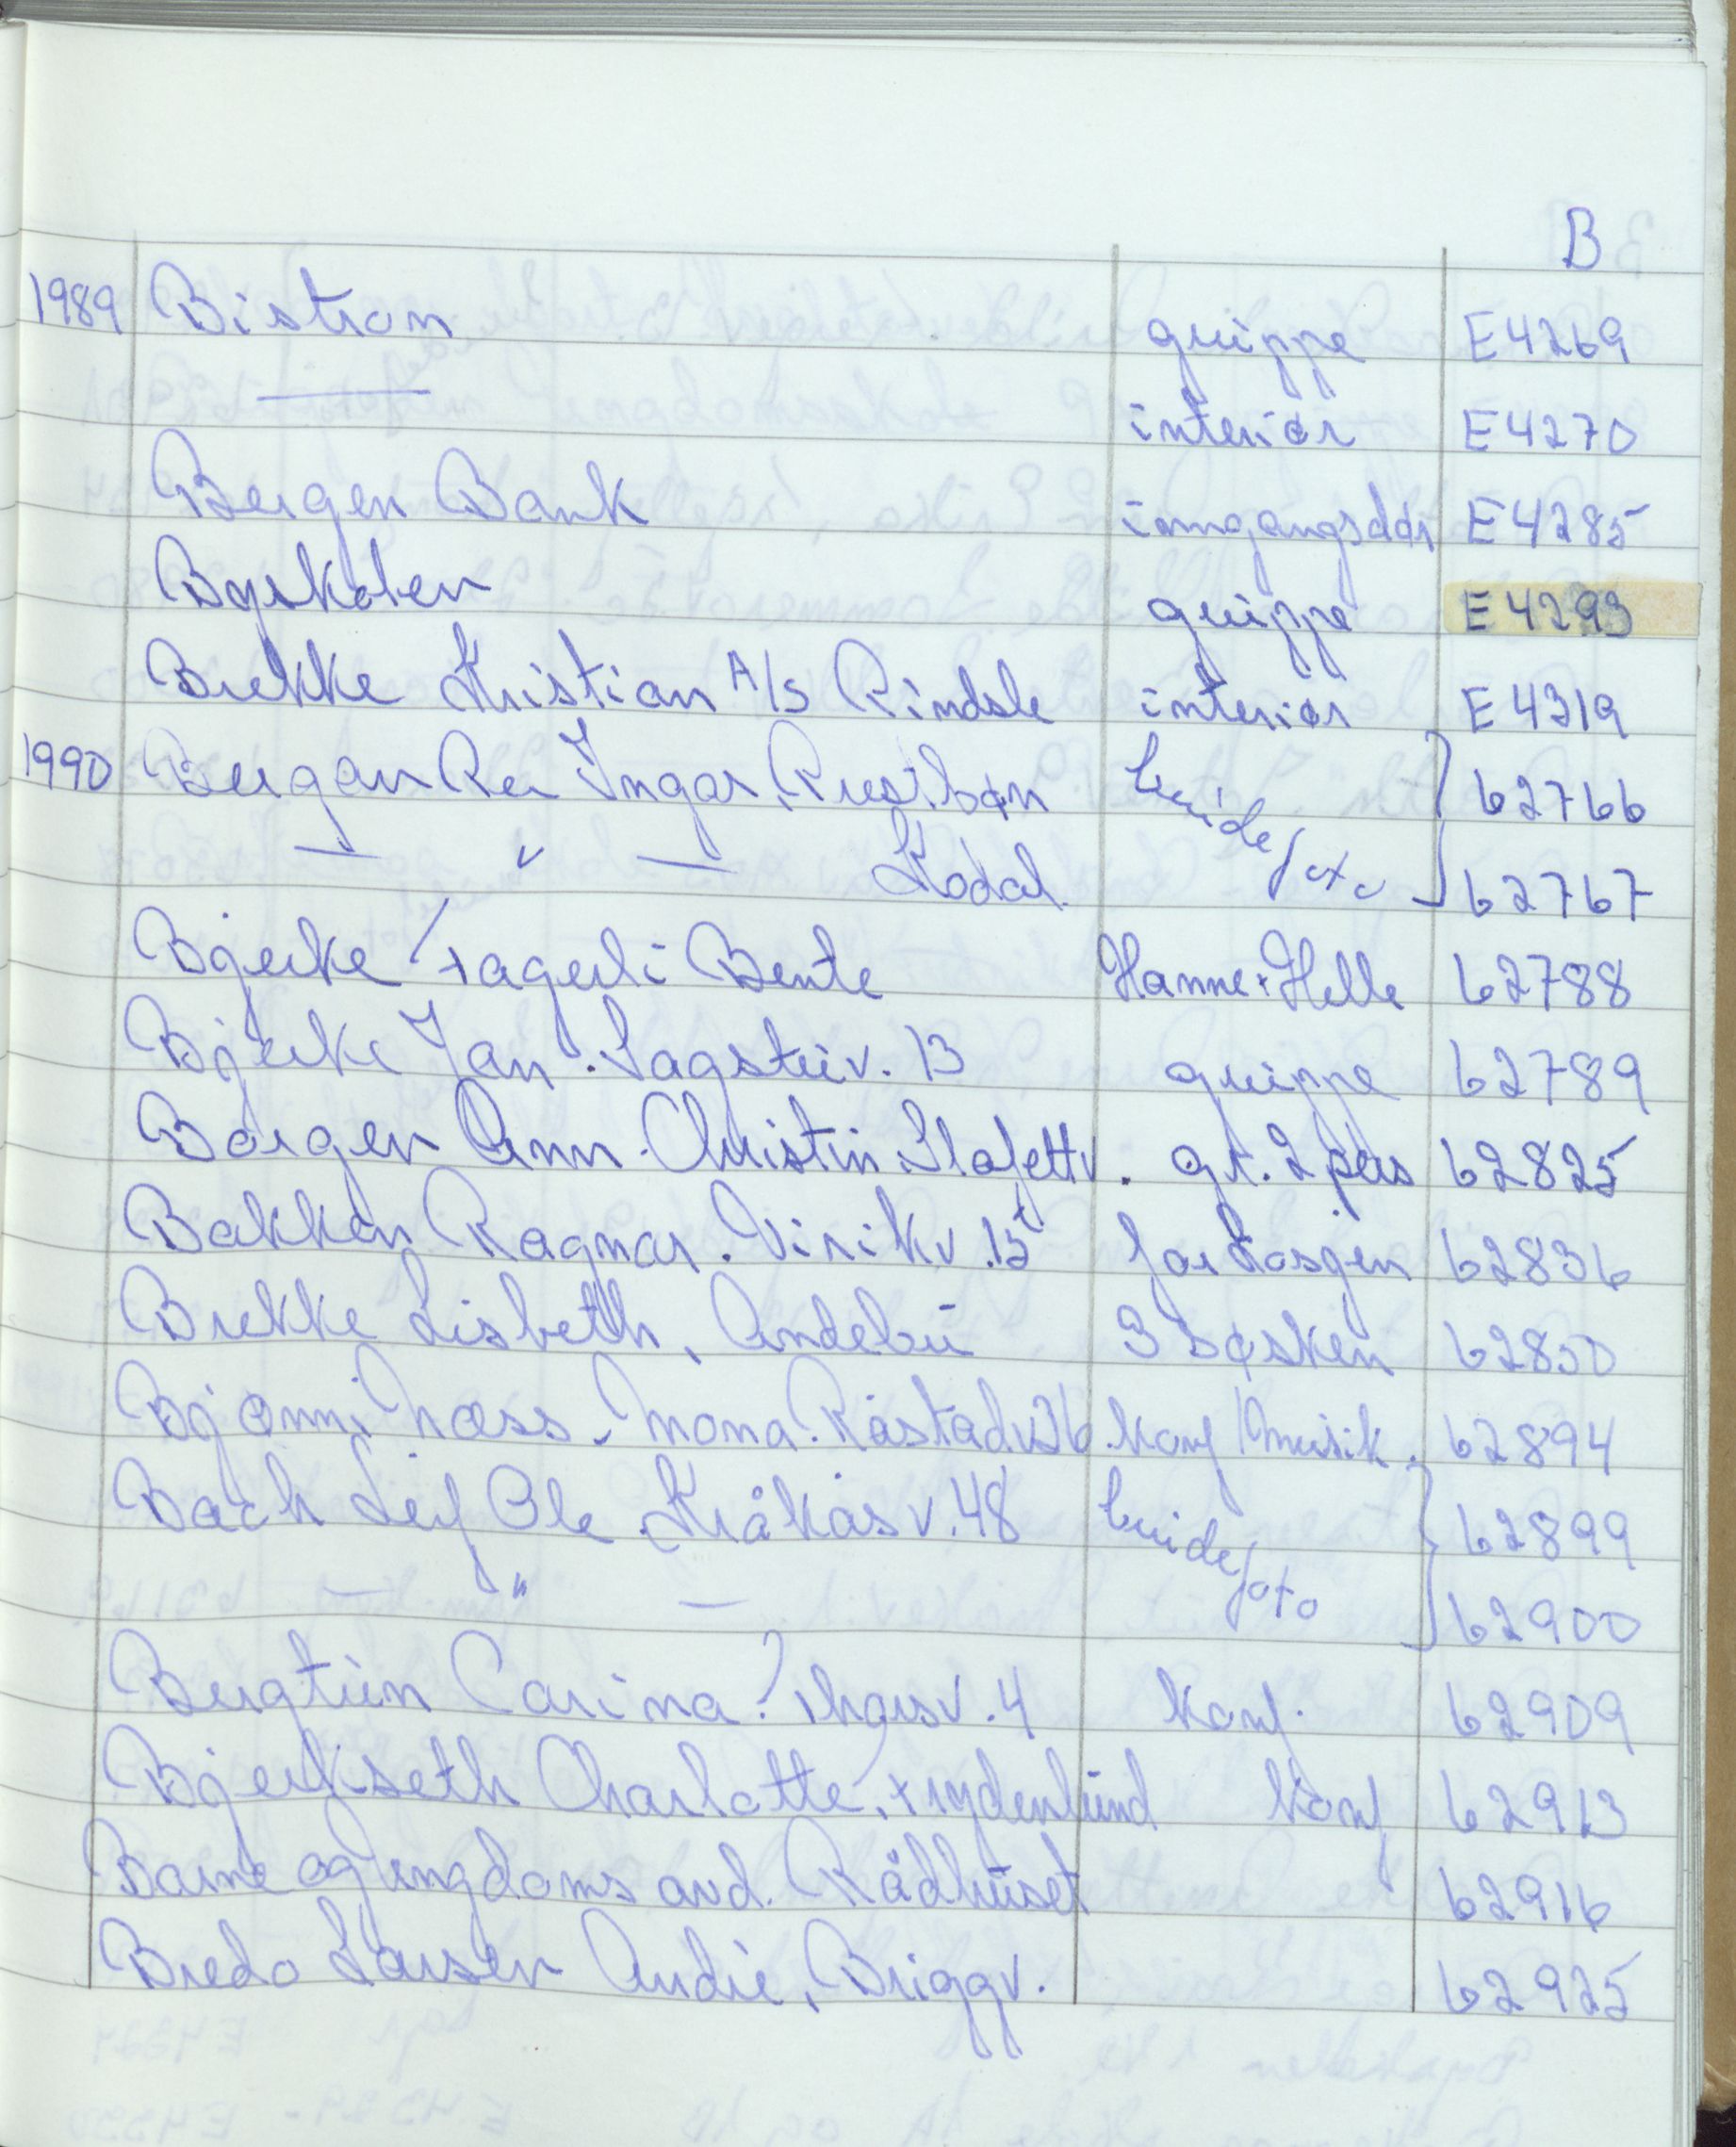 B
1989 Bistroen gruppe E4269
—— interiør E4270
Bergen Bank inngangsdør E4285
Byskolen gruppe E4293
Brekke Kristian A/S Rindsle interiør E4319
1990 Bergan Per Ingar, Prestbøn brudefoto } 62766
— " — Kodal. 62767
Bjerke Fagerli Bente Hanne+Helle 62788
Bjerke Jan. Fagsteiv. 13 gruppe 62789
Borgen Ann-Christin. Stafettv. gr. 2 pers 62825
Bakken Ragnar. Virikv. 13 62836
Brekke Lisbeth, Andebu 3 søsken 62850
Næss, Mona. Råstadv 36 konf/musik. 62894
Bach Leif Ole. Kråkåsv. 48 brudefoto } 62899
— " — 62900
Bergtun Carina. Thorsv. 4 konf. 62909
Bjerkseth Charlotte, Frydenlund konf 62913
Barne og ungdoms avd. Rådhuset 62916
Bredo Larsen Andre, Briggv. 62925